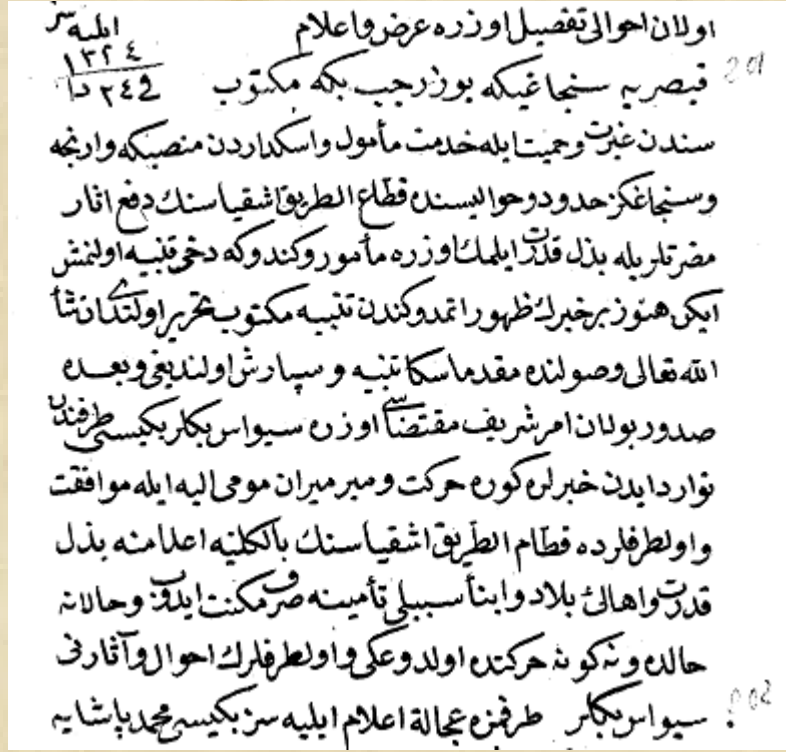 اولان احوالی تفصیل اوزره عرض و اعلام ایلیه سز
فی ٢٤ ذا ١٣٢٤
قیصریه سنجاغی بکی بوز رجب بکه مکتوب
سندن غیرت و حمیت ایله خدمت مأمول و اسکداردن منصبکه وارنجه
و سنجاغکز حدود و حوالیسنده قطاع الطریق اشقیاسنك دفع اثار
مضرتلریله بذل قدرت ایلمك اوزره مأمور و کندوکه دخی تنبیه اولنمش
ایکن هنوز بر خبرك ظهور اتمدوکندن تنبیه مکتوب تحریر اولندی ان شأ
الله تعالی وصولنده مقدما سکا تنبیه و سپارش اولندیغی و بعده
صدور بولان امر شریف مقتضاسی اوزره سیواس بکلربکیسی طرفندن
توارد ایدن خبرلره کوره حرکت و میر میران مومی الیه ایله موافقت
و اولطرفلرده قطاع الطریق اشقیاسنك بالکلیه اعدامنه بذل
قدرت و اهالئ بلاد و ابنأ سبیلی تأمینه صرف مکنت ایدوب و حالا نه
حالده و نه کونه حرکتده اولدوغکی و اولطرفلرك احوال و آثارنی
سیواس بکلر طرفمزه عجالة اعلام ایلیه سز بکیسی محمد پاشایه